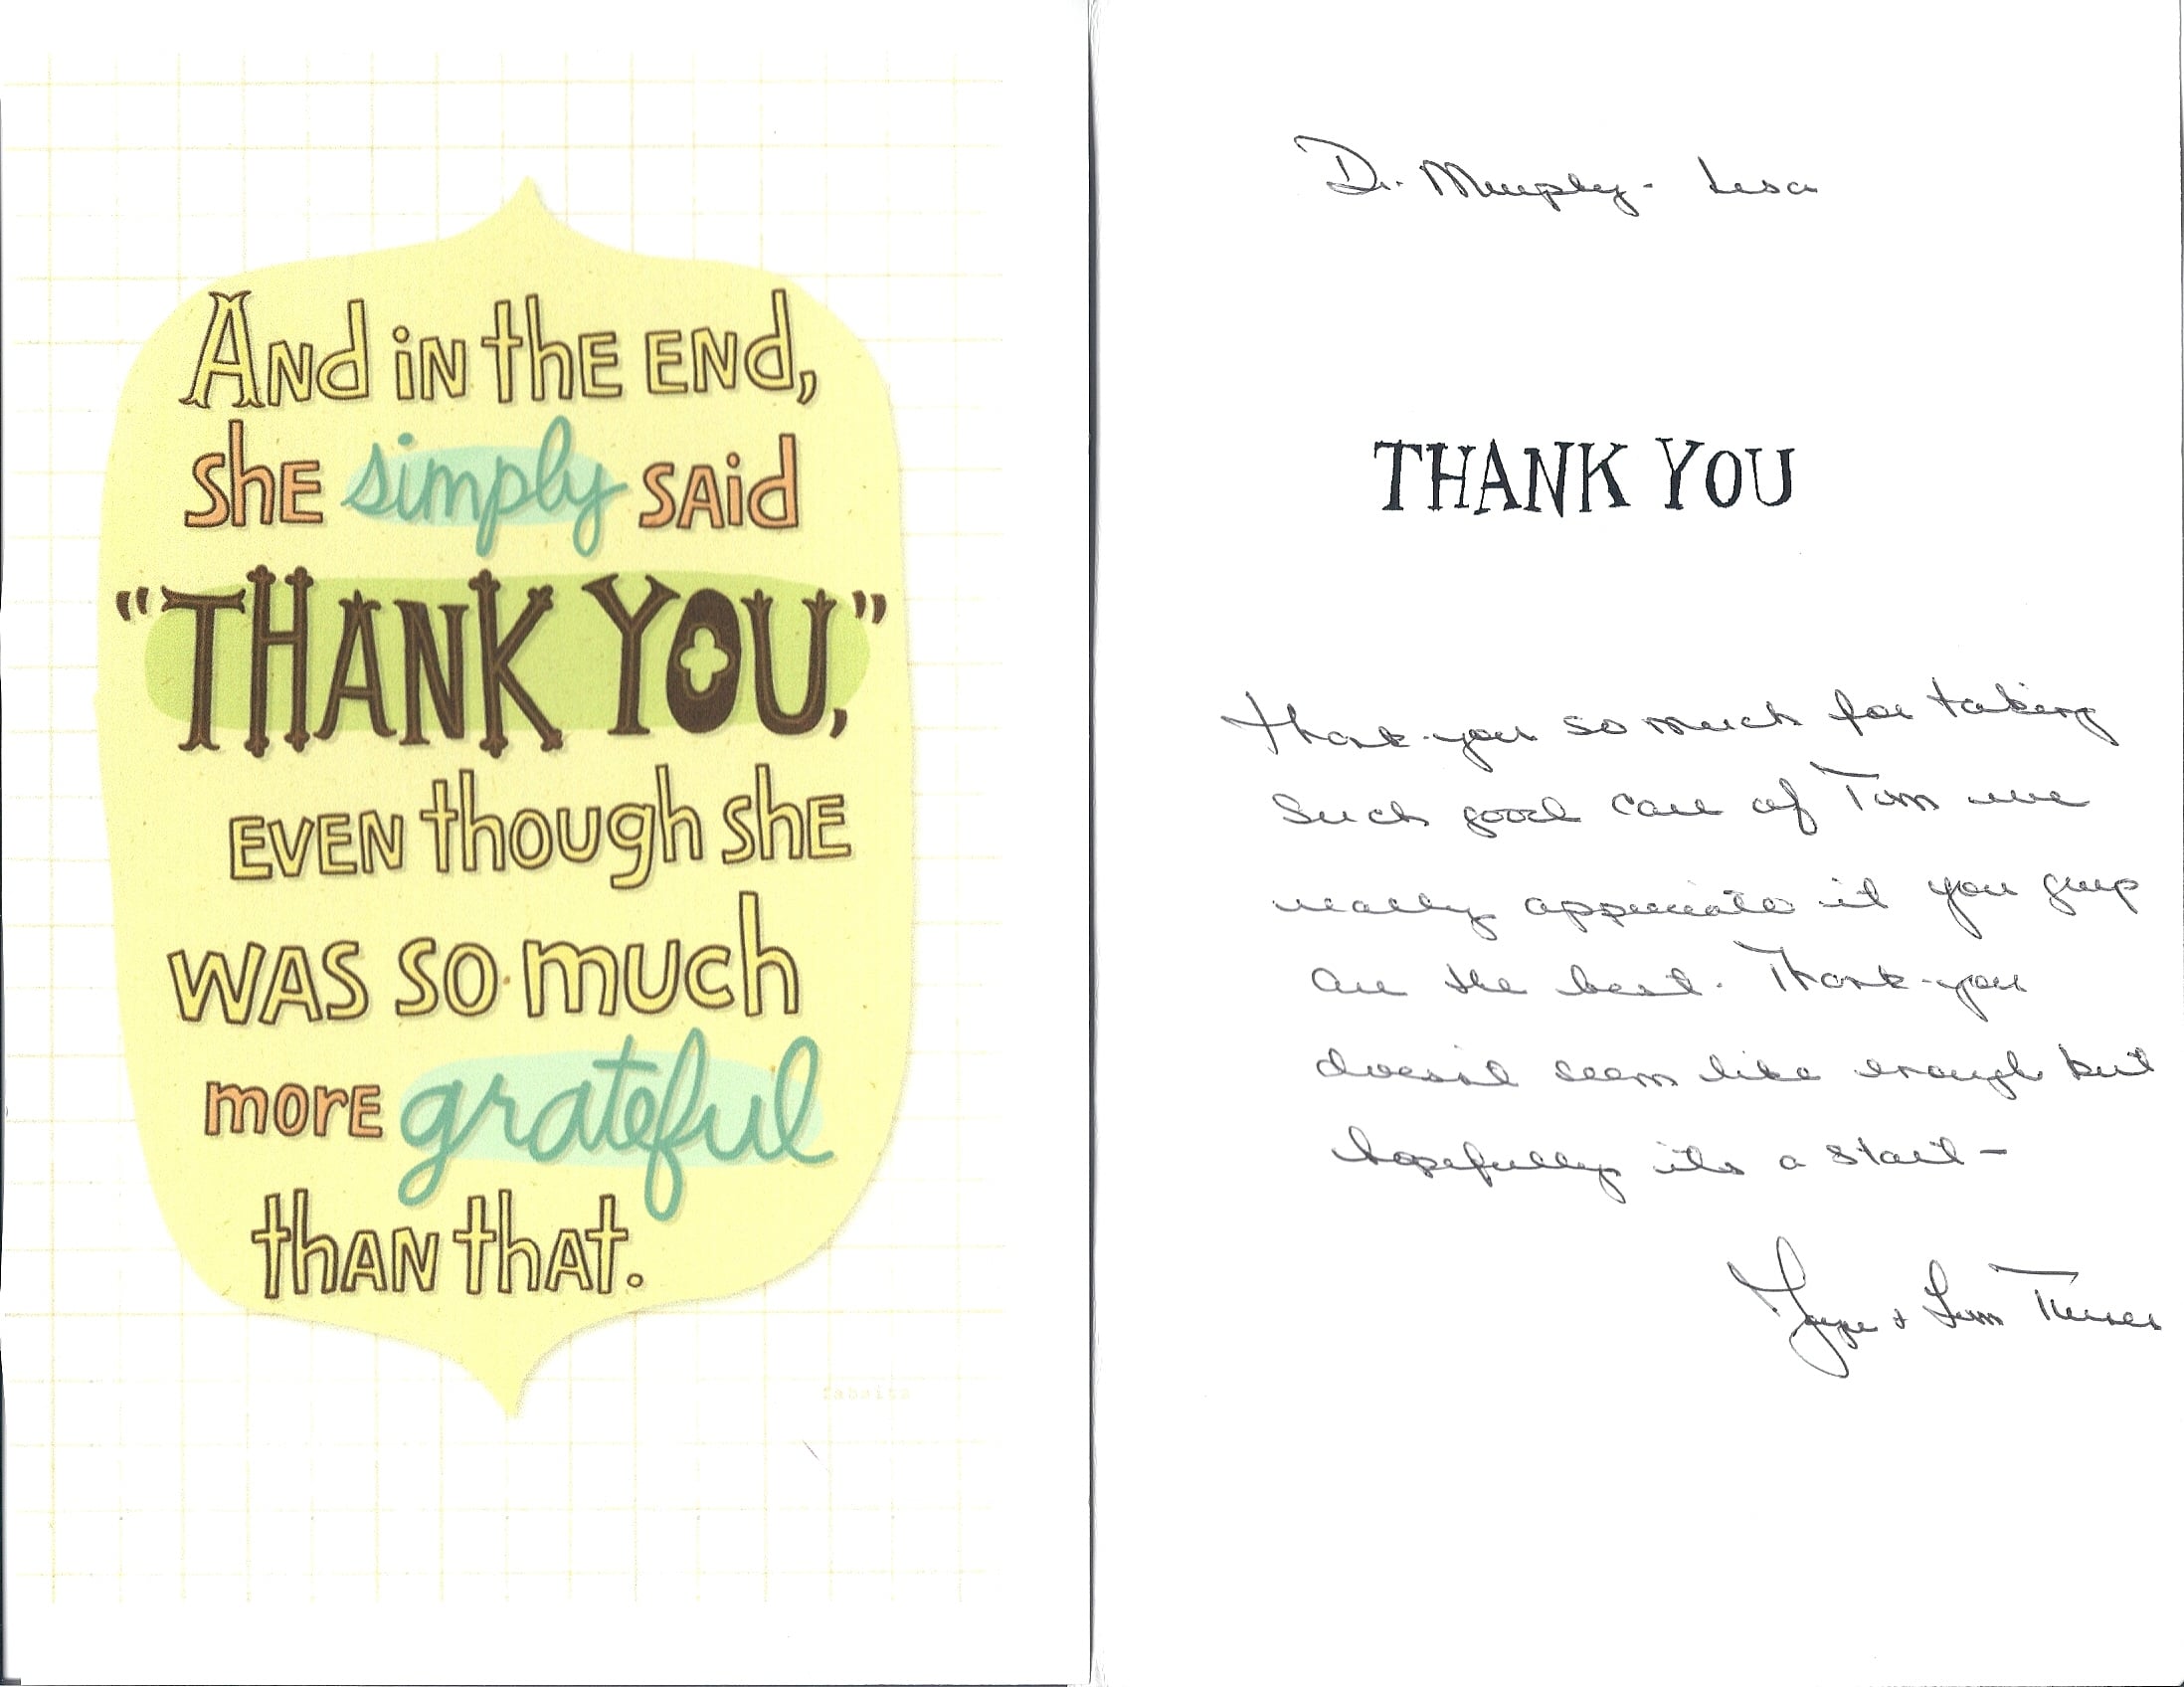 And in the end,
she simply said
"THANK YOU,"
even though she
was so much
more grateful
than that.
Dr. Murphy - Lisa
THANK YOU
Thank-you so much for taking
such good care of Tom we
really appreciate it you guys
are the best. Thank-you
doesn't seem like enough but
hopefully its a start -
+ Tom Turner